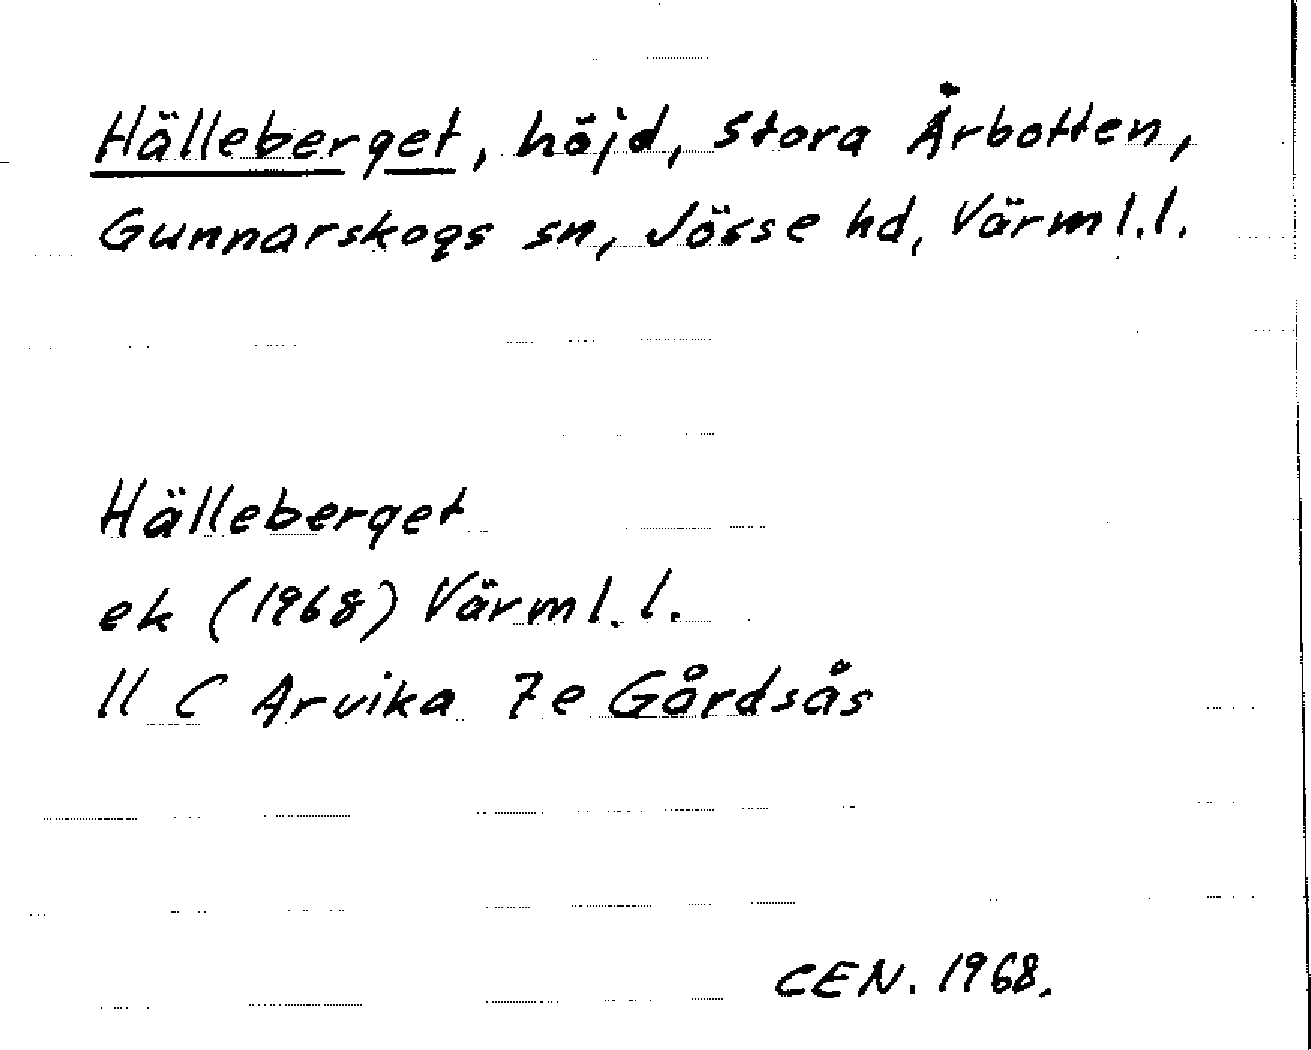 Hälleberget, höjd, Stora Årbotten,
Gunnarskogs sn, Jösse hd, Värml.l.
Hälleberget
ek (1968) Värml.l.
11 C Arvika 7e Gårdsås
CEN. 1968.